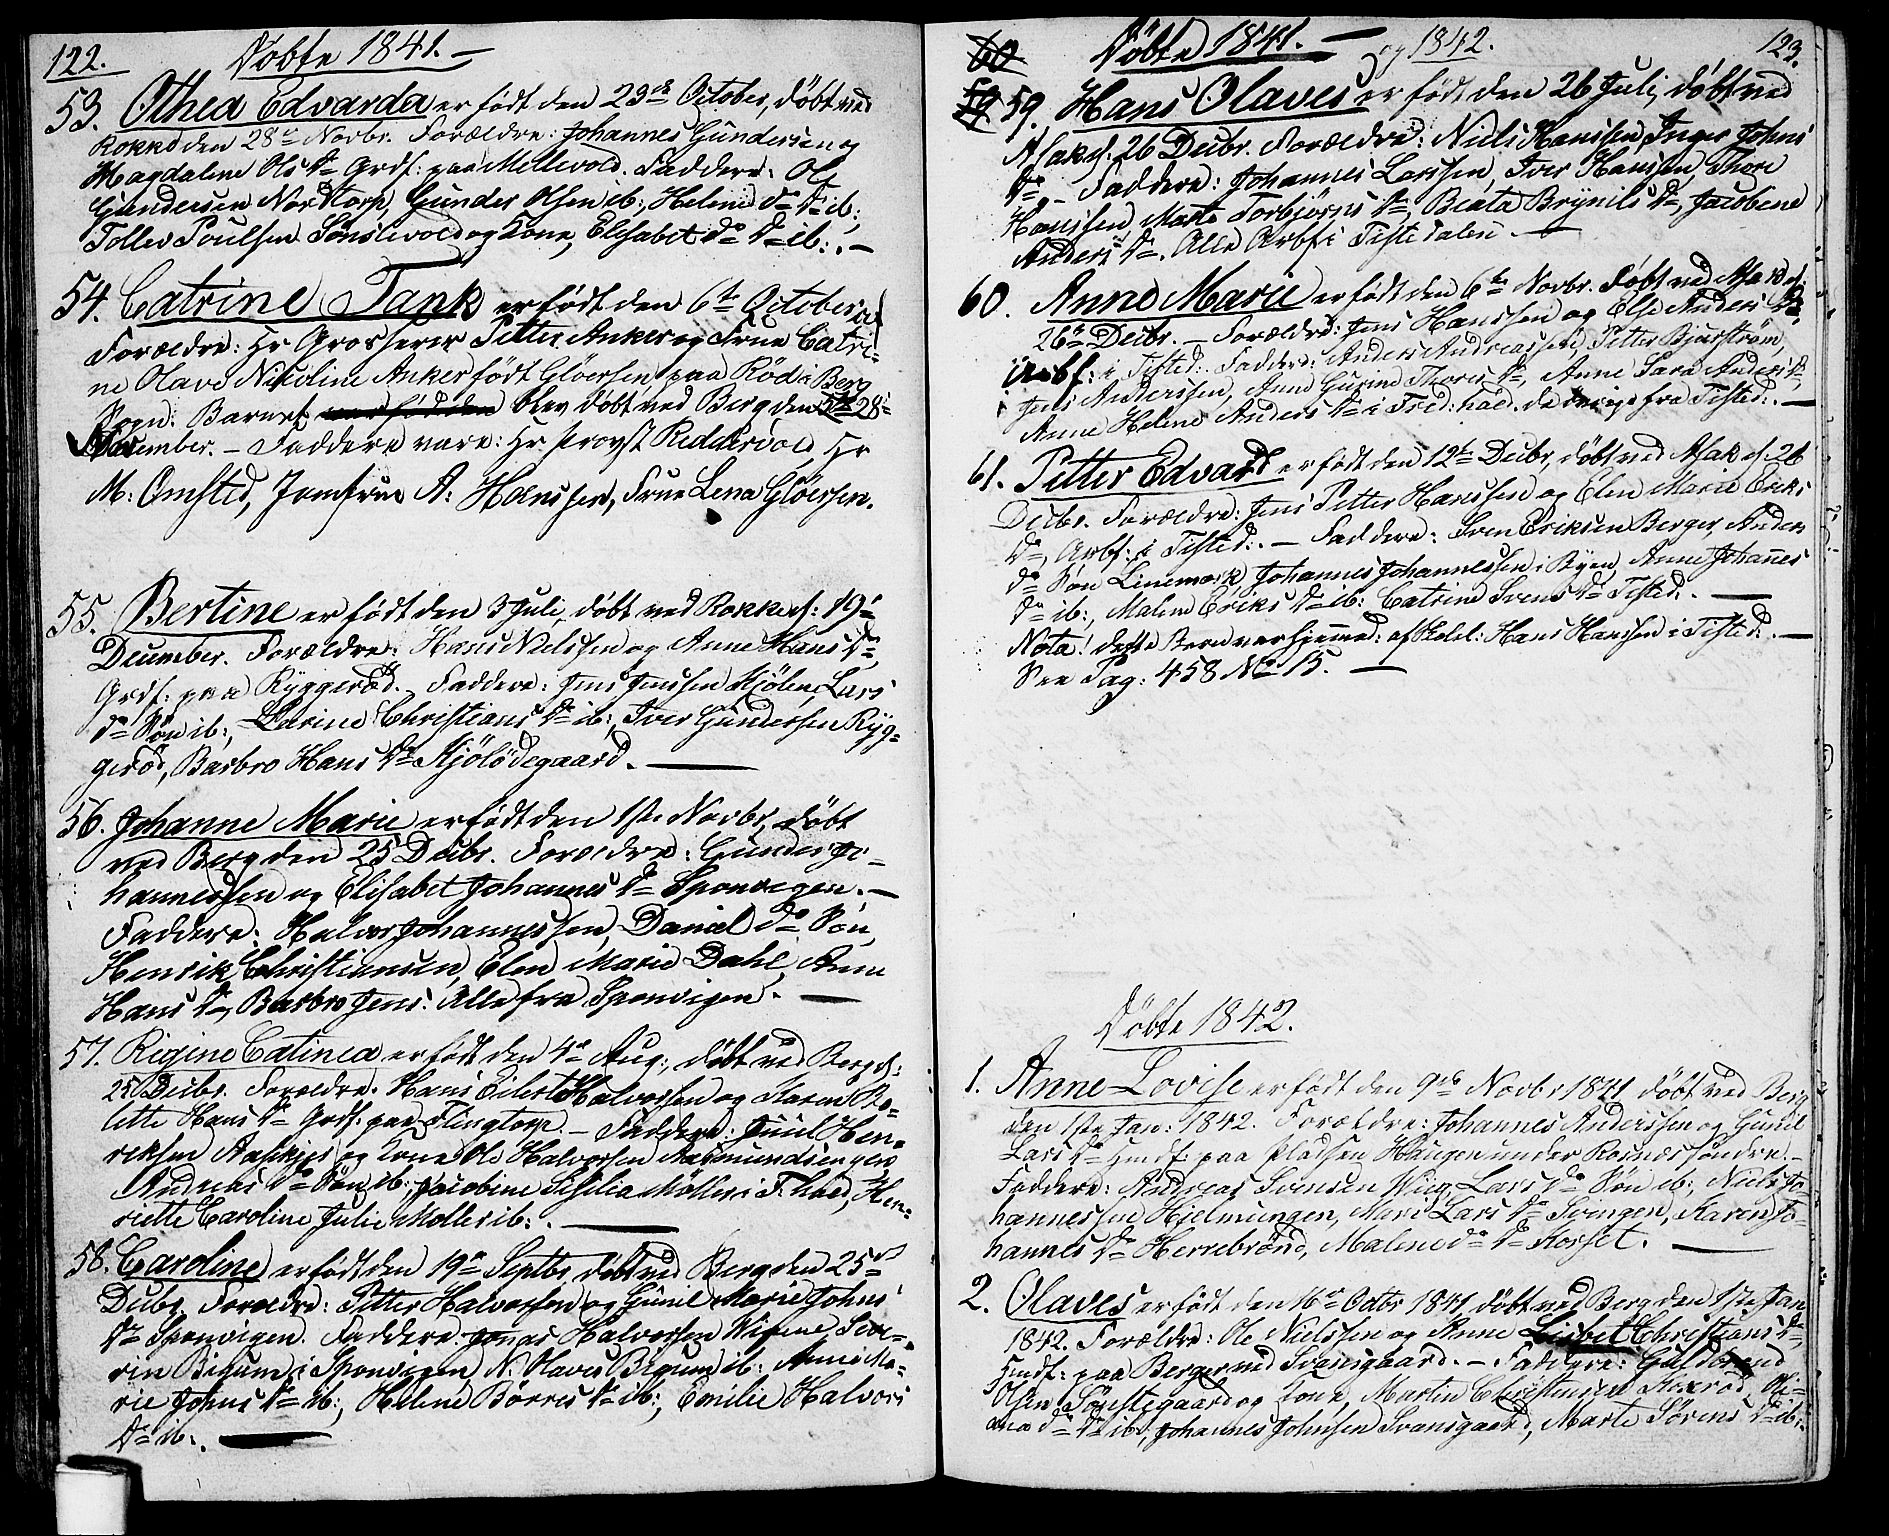 122. Döbte 1841. —
53. Othea Edvarda er födt den 29de October, döbt ved
Rokke den 28de Novbr. Forældre: Johannes Gundersen og
Magdalene Ols Dr Grdf: paa Mellevold. Faddere: Ole
Gundersen Norktorp, Gunder Olsen ib:, Helene do Dr ib:,
Tollev Poulsen Sönslevold og Kone, Elisabet do Dr ib:. —
54. Catrine Tank er födt den 6te October af
Forældre: Hr Grosserer Petter Anker og Frue Catri=
ne Olave Nikoline Anker födt Glöersen paa Röd i Berg
Sogn: Barnet var född den blev döbt ved Berg den 28=
December. — Faddere vare: Hr Provst Reddervold, Hr
M: Omsted, Jomfrue A: Hanssen, Frue Lena Glöersen.
55. Bertine er födt den 3 Juli, döbt ved Rokke d: 19=
December. Forældre: Hans Nielssen og Anne Hans Dr
Grdf: paa Ryggeröd. Faddere: Jens Jenssen Kjölen, Lars
do Sön ib:, Karine Christians Dr ib:, Iver Gundersen Ryg=
geröd, Barbro Hans Dr Kjölödegaard. —
56. Johanne Marie er födt den 1ste Novbr, döbt
ved Berg den 25 Decbr. Forældre: Gunder Jo=
hannessen og Elisabet Johannes Dr Sponvigen. —
Faddere: Halvor Johannessen, Daniel do Sön,
Henrik Christiansen, Elen Marie Dahl, Anne
Hans Dr, Barbro Jens: Alle fra Sponvigen. —
57. Regine Catinea er födt den 4de Aug:, döbt ved Berg d:
25 Decbr. Forældre: Hans Eilert Halvorsen og Karen Bo=
lette Hans Dr Grdf: paa Flingtorp. — Faddere: Juul Hen=
riksen Aaskijes og Kone Ole Halvorsen Aasmundsengen
Andreas do Sön ib:, Jacobine Sesilia Möller i F:hald, Hen=
riette Caroline Julie Möller ib:. —
58. Caroline er födt den 19de Septbr, döbt ved Berg den 25de
Decbr. Forældre: Petter Halvorsen og Gunil Marie Johns
Dr Sponvigen. Faddere: Jonas Halvorsen Vigene, Seve=
rin Bigum i Sponvigen, N: Olaves Bigum ib: Anne Ma=
rie Johns Dr ib:, Helene Börres Dr ib:, Emilie Halvors
Dr ib:. —
60 Döbte 1841. — og 1842. 123.
59 59. Hans Olaves er födt den 26 Juli, döbt ved
Asak d. 26 Decbr. Forældre: Niels Hanssen, Inger Johns
Dr — Faddere: Johannes Larssen, Iver Hanssen, Thore
Hanssen, Marte Torbjörns Dr, Beata Brynils Dr, Jacobene
Anders Dr. Alle Arbf: i Tistedalen —
60. Anne Marie er födt den 6te Novbr. döbt ved Asak d:
26de Decbr. — Forældre: Jens Hanssen og Else Anders Dr
Arbf: i Tisted: Faddere: Anders Andreassen, Petter Bjurström,
Jens Anderssen, Anne Gurine Thores Dr, Anne Sara Anders Dr
Anne Helene Anders Dr i Fred:hald. de övrige fra Tisted:. —
61. Petter Edvard er födt den 12te Decbr, döbt ved Asak d. 26
Decbr. Forældre: Jens Petter Hanssen og Elen Marie Eriks
Dr, Arbf: i Tisted:. — Faddere: Sven Eriksen Berger, Anders
do Sön Linemark, Johannes Johannessen i Byen, Anne Johannes
Dr ib:, Malene Eriks Dr ib: Catrine Svens Dr Tisted:. —
Nota! dette Barn var hjemmed: af Skolel: Hans Hanssen i Tisted:. —
See Pag: 458 No 15. —
Döbte 1842.
1. Anne Lovise er födt den 9de Novbr 1841 döbt ved Berg
den 1ste Jan: 1842. Forældre: Johannes Anderssen og Gunil
Lars Dr Huusf: paa Pladsen Haugen under Rosnæs söndre. —
Faddere: Andreas Svensen Wiig, Lars do Sön ib:, Niels Jo=
hannessen Hjelmungen, Mari Lars Dr Svingen, Karen Jo=
hannes Dr Herrebrönd, Malene do Dr Korset. —
2. Olaves er födt den 16de Octbr 1841, döbt ved Berg den 1ste Jan
1842. Forældre: Ole Nielssen og Anne Lisbet Christians Dr
Huusf: paa Berger ved Svansgaard. — Faddere: Guldbrand
Olsen Sönstegaard og Kone, Martin Christensen Skaröd, Oli=
ana do Dr ib:, Johannes Johnsen Svansgaard, Marte Sörens Dr ib: